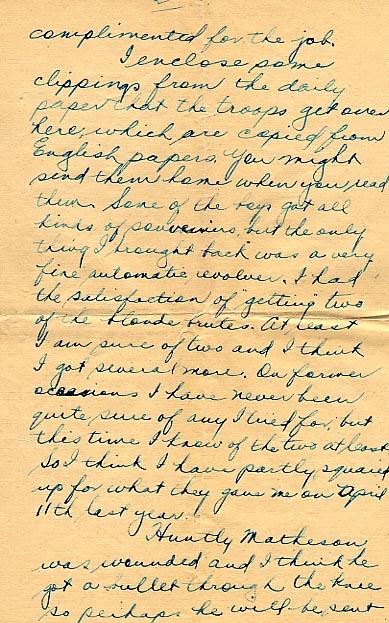 complimented for the job.
I enclose some
clippings from the daily
paper that the troops get over
here, which are copied from
English papers. You might
send them home when you read
them. Some of the boys got all
kinds of souveniers, but the only
thing I brought back was a very
fine automatic revolver. I had
the satisfaction of "getting" two
of the blonde brutes. At least
I am sure of two and I think
I got several more. On former
occasions I have never been
quite sure of any I tried for, but
this time I know of the two at least
So I think I have partly squared
up for what they gave me on April
11th last year.
Huntly Matheson
was wounded and I think he
got a bullet through the knee
so perhaps he will be sent